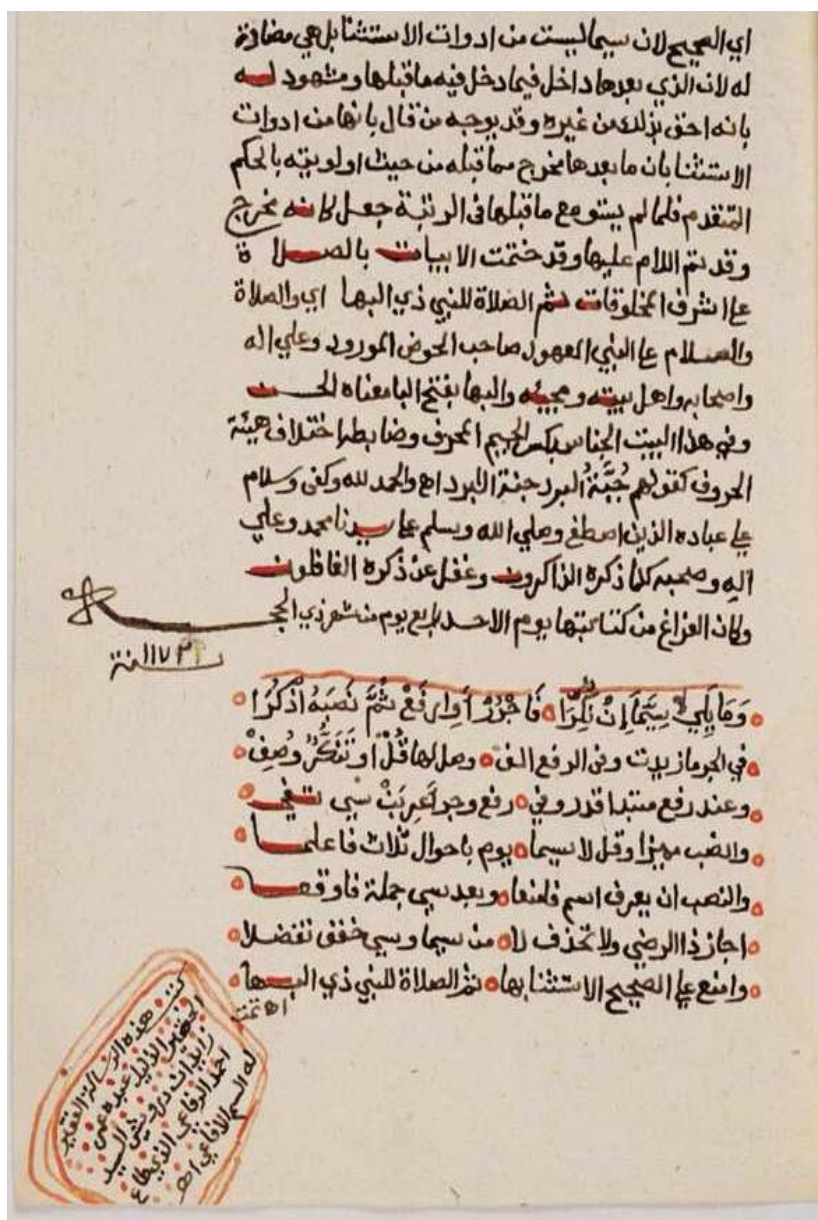 اي الصحيح لان سيما ليست من ادوات الاستثنا بل هي مضادة
له لان الذي بعدها داخل فيما دخل فيه ما قبلها ومشهود له
بانه احق بذلك من غيره وقد يوجه من قال بانها من ادوات
الاستثنا بان ما بعدها مخرج مما قبله من حيث اولويته بالحكم
المتقدم فلما لم يستو مع ما قبلها في الرتبة جعل كانه مخرج
وقد تم اللام عليها وقد ختمت الابيات بالصلا ة
علي اشرف المخلوقات ثم الصلاة للنبي ذي البها اي والصلاة
والسلام علي النبي المعهود صاحب الحوض المورود وعلي اله
واصحابه واهل بيته ومحبيه والبها بفتح البا معناه الحسن
وفي هذا البيت الجناس بكسر الجيم المحرف وضابطه اختلاف هيئة
الحروف كقولهم جُبَّةُ البرد جنة البرد اه والحمد لله وكفى وسلام
علي عباده الذين اصطفى وصلي الله وسلم علي سيدنا محمد وعلي
آله وصحبه كلما ذكره الذاكرون وغفل عن ذكره الغافلون
وكان الفراغ من كتابتها يوم الاحد رابع يوم من شهر ذي الحجه
١١٧٣ سنة
وَمَا يَلِي لا سِيَّمَا إِنْ نُكِّرَا فَاجْرُرْ أَوِ ارفَعْ ثُمَّ نَصْبَهُ اذْكُرَا
في الجر ما زيدت وفي الرفع الف وصل لها قُلْ او تَنَكُّرٌ وُصِفْ
وعند رفع مبتدا قدر وفي رفع وجر اعرِبَنْ سي تفي
والنصب مميزا وقل لا سيما يوم باحوال ثلاث فاعلما
والنصب ان يعرف اسم فامنعا وبعد سي جملة فاوقعا
اجاز ذا الرضي ولا تحذف لا من سيما وسي خفف تفضلا
وامنع علي الصحيح الاستثنا بها ثم الصلاة للنبي ذي البها
اه تمت
كتب هذه الرسالة الفقير
الحقير الذليل عبده
درويش السيد
احمد الرفاعي الذي طاع
له السم الافاعي اهـ